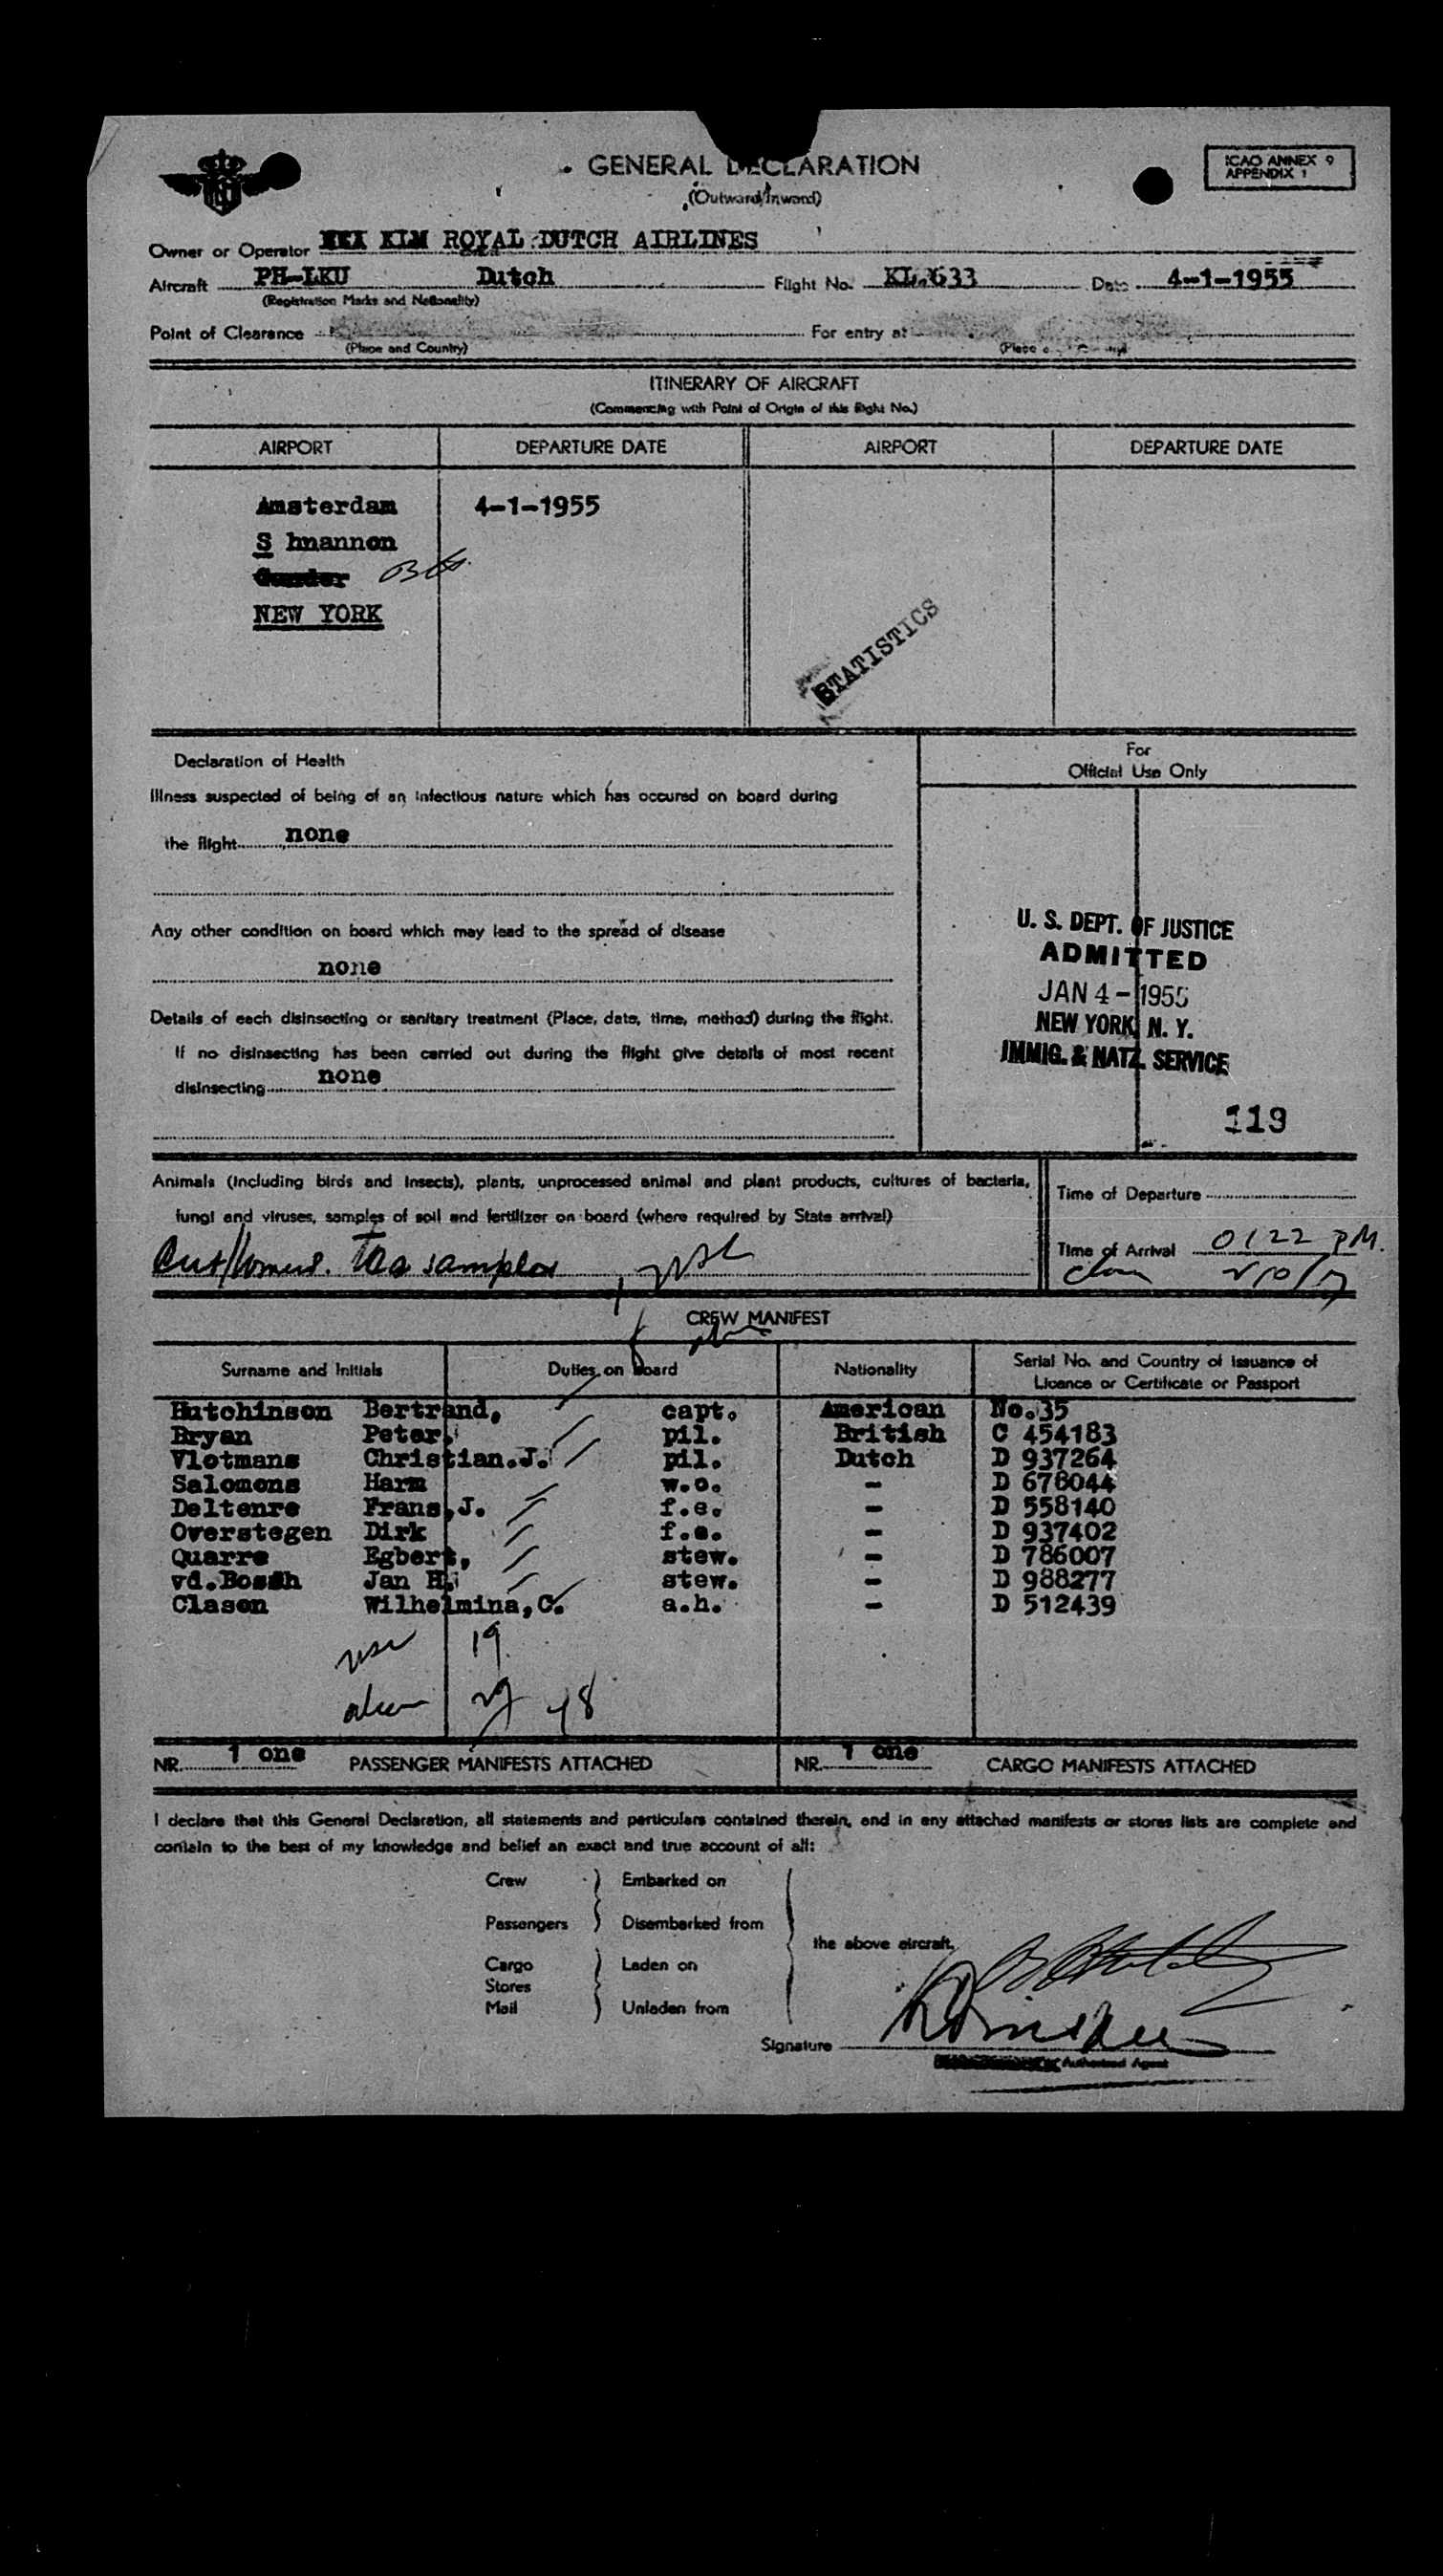 GENERAL DECLARATION
(Outward/Inward)
ICAO ANNEX 9
APPENDIX 1
Owner or Operator KLM ROYAL DUTCH AIRLINES
Aircraft PH-LKU Dutch Flight No. KL.633 Date 4-1-1955
(Registration Marks and Nationality)
Point of Clearance For entry at
(Place and Country)
ITINERARY OF AIRCRAFT
(Commencing with Point of Origin of this flight No.)
AIRPORT DEPARTURE DATE AIRPORT DEPARTURE DATE
Amsterdam 4-1-1955
S hnannon
Gander
NEW YORK
STATISTICS
Declaration of Health
For
Official Use Only
Illness suspected of being of an infectious nature which has occured on board during
the flight none
Any other condition on board which may lead to the spread of disease
none
Details of each disinsecting or sanitary treatment (Place, date, time, method) during the flight.
If no disinsecting has been carried out during the flight give details of most recent
disinsecting none
U. S. DEPT. OF JUSTICE
ADMITTED
JAN 4 - 1955
NEW YORK, N. Y.
IMMIG. & NATZ. SERVICE
119
Animals (including birds and insects), plants, unprocessed animal and plant products, cultures of bacteria,
fungi and viruses, samples of soil and fertilizer on board (where required by State arrival)
Tea samples
Time of Departure
Time of Arrival 0122 PM.
CREW MANIFEST
Surname and Initials Duties on Board Nationality Serial No. and Country of Issuance of
Licence or Certificate or Passport
Hutchinson Bertrand, capt. American No.35
Bryan Peter, pil. British C 454183
Vlotmans Christian.J. pil. Dutch D 937264
Salomons Harm w.o. - D 678044
Deltenre Frans,J. f.e. - D 558140
Overstegen Dirk f.e. - D 937402
Quarre Egbert, stew. - D 786007
vd.Bossh Jan H. stew. - D 988277
Clasen Wilhelmina,C. a.h. - D 512439
19
29 48
NR. 1 one PASSENGER MANIFESTS ATTACHED NR. 1 one CARGO MANIFESTS ATTACHED
I declare that this General Declaration, all statements and particulars contained therein, and in any attached manifests or stores lists are complete and
contain to the best of my knowledge and belief an exact and true account of all:
Crew Embarked on
Passengers Disembarked from
the above aircraft.
Cargo Laden on
Stores
Mail Unladen from
Signature
Authorized Agent